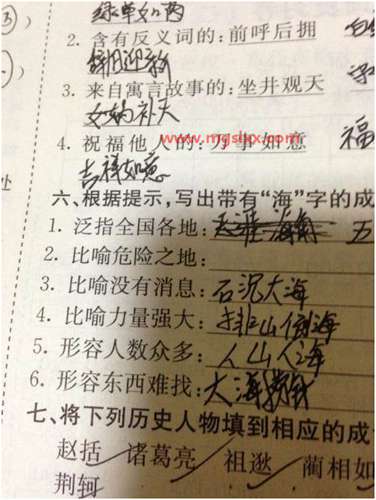 2. 含有反义词的: 前呼后拥
辞旧迎新
3. 来自寓言故事的: 坐井观天
女娲补天
4. 祝福他人的: 万事如意 福
www.mgslkx.com
吉祥如意
处
六、根据提示，写出带有“海”字的成
1. 泛指全国各地: 五
2. 比喻危险之地:
3. 比喻没有消息: 石沉大海
4. 比喻力量强大: 排山倒海
5. 形容人数众多: 人山人海
6. 形容东西难找: 大海捞针
七、将下列历史人物填到相应的成
赵括 诸葛亮 祖逖 蔺相如
荆轲